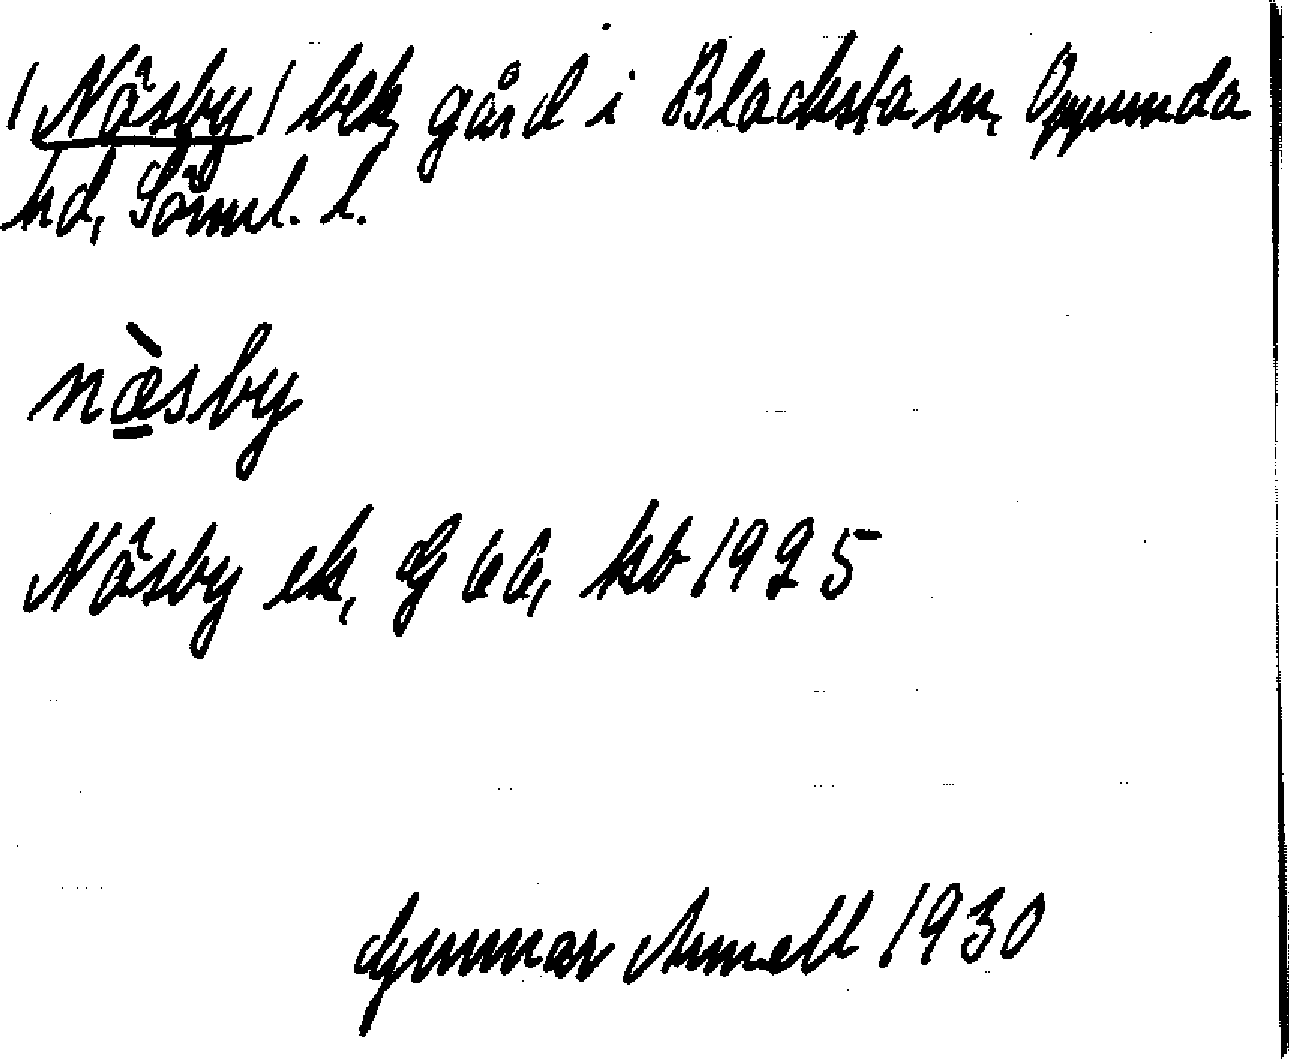 /Näsby/ bek, gård i Blacksta sn, Oppunda
hd, Söml. l.
nä̀sby
Näsby ek, G 66, kb 1925
Gunnar Arnell 1930